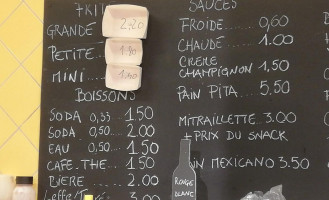 FRITES
GRANDE 2,20
PETITE 1.80
MINI 1.60
BOISSONS
SODA 0,33 1.50
SODA 0,50 2.00
EAU 0,50 1.50
CAFE-THE 1.50
BIERE 2.00
Leffe
SAUCES
FROIDE 0,60
CHAUDE 1.00
CREME
CHAMPIGNON 1,50
PAIN PITA 5,50
MITRAILLETTE 3.00
+PRIX DU SNACK
PAIN MEXICANO 3.50
ROUGE
BLANC